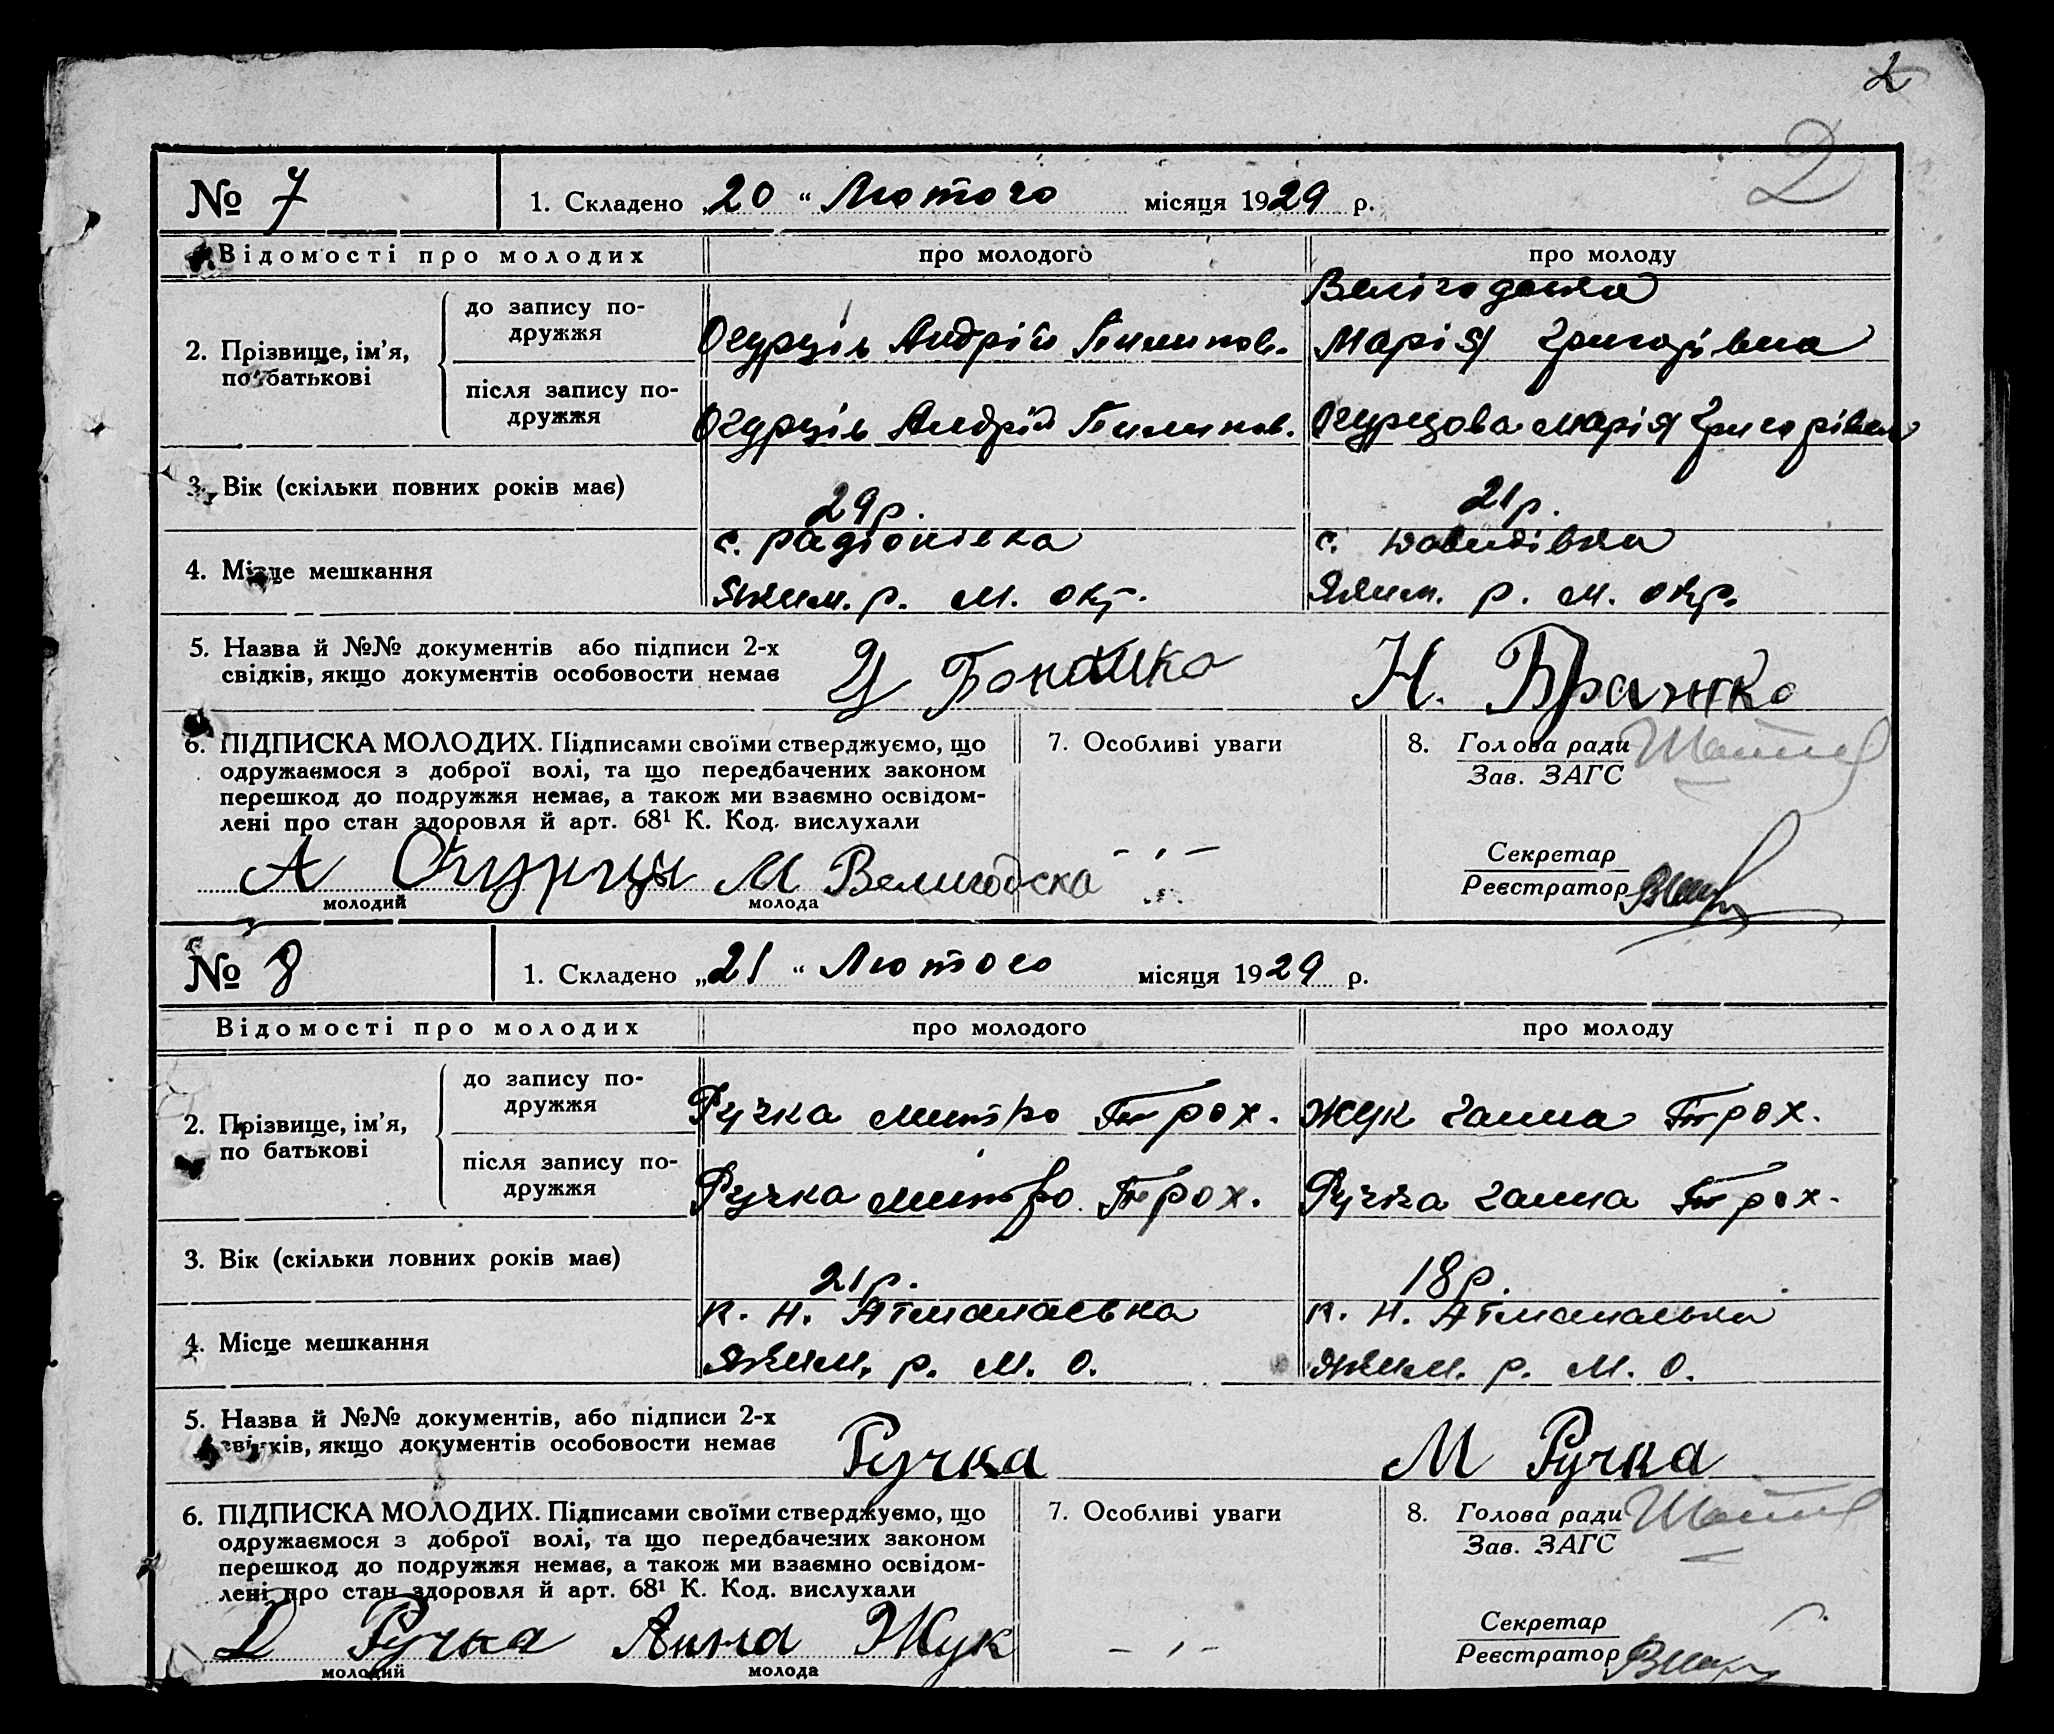 2
2
№ 7 1. Складено „20“ Лютого місяця 1929 р.
Відомості про молодих про молодого про молоду
2. Прізвище, ім’я, по батькові
до запису подружжя
Огурців Андрій Пилипов. Велігодська
Марія Григорівна
після запису по-
дружжя
Огурців Андрій Пилипов. Огурцова Марія Григорівна
3. Вік (скільки повних років має) 29 р. 21 р.
4. Місце мешкання с. Радіонівка с. Давидівка
Яким. р. М. окр. Яким. р. М. окр.
5. Назва й №№ документів або підписи 2-х
свідків, якщо документів особовости немає
Н. Бражко
6. ПІДПИСКА МОЛОДИХ. Підписами своїми стверджуємо, що
одружаємося з доброї волі, та що передбачених законом
перешкод до подружжя немає, а також ми взаємно освідом-
лені про стан здоровля й арт. 68¹ К. Код. вислухали
А Огурцы М Велигодска
молодий молода
7. Особливі уваги
– „ –
8. Голова ради
Зав. ЗАГС
Секретар
Реєстратор
№ 8 1. Складено „21“ Лютого місяця 1929 р.
Відомості про молодих про молодого про молоду
2. Прізвище, ім’я,
по батькові
до запису по-
дружжя
Ручка Митро Трох. Жук Ганна Трох.
після запису по-
дружжя
Ручка Митро Трох. Ручка Ганна Трох.
3. Вік (скільки повних років має) 21 р. 18 р.
4. Місце мешкання к. Н. Атманаєвка к. Н. Атманаєвка
Яким. р. М. О. Яким. р. М. О.
5. Назва й №№ документів, або підписи 2-х
свідків, якщо документів особовости немає
Ручка М Ручка
6. ПІДПИСКА МОЛОДИХ. Підписами своїми стверджуємо, що
одружаємося з доброї волі, та що передбачених законом
перешкод до подружжя немає, а також ми взаємно освідом-
лені про стан здоровля й арт. 68¹ К. Код. вислухали
Д Ручка Анна Жук
молодий молода
7. Особливі уваги
– „ –
8. Голова ради
Зав. ЗАГС
Секретар
Реєстратор